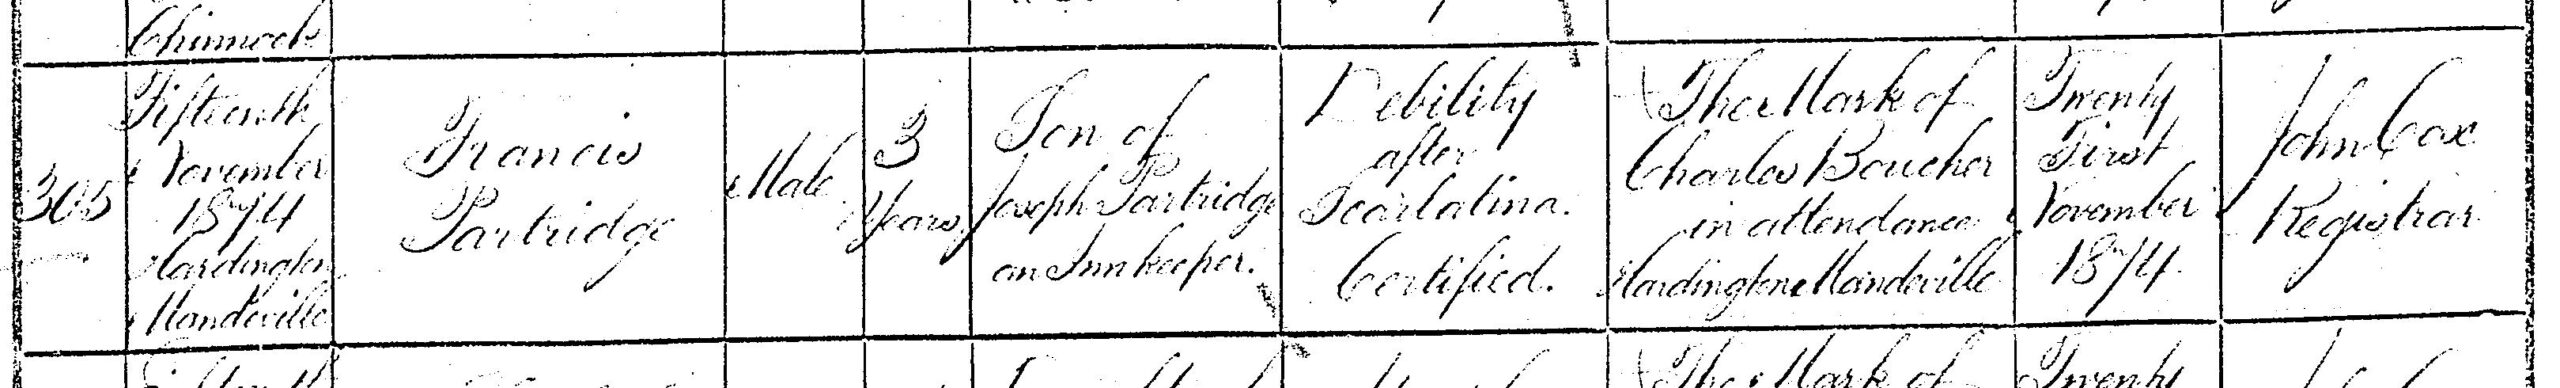 Chinnock
305
Fifteenth
November
1874
Hardington
Mandeville
Francis
Partridge
Male
3
Years
Son of
Joseph Partridge
an Innkeeper.
Debility
after
Scarlatina.
Certified.
X The Mark of
Charles Boucher
in attendance
Hardington Mandeville
Twenty
First
November
1874
John Cox
Registrar
The Mark of
Twenty